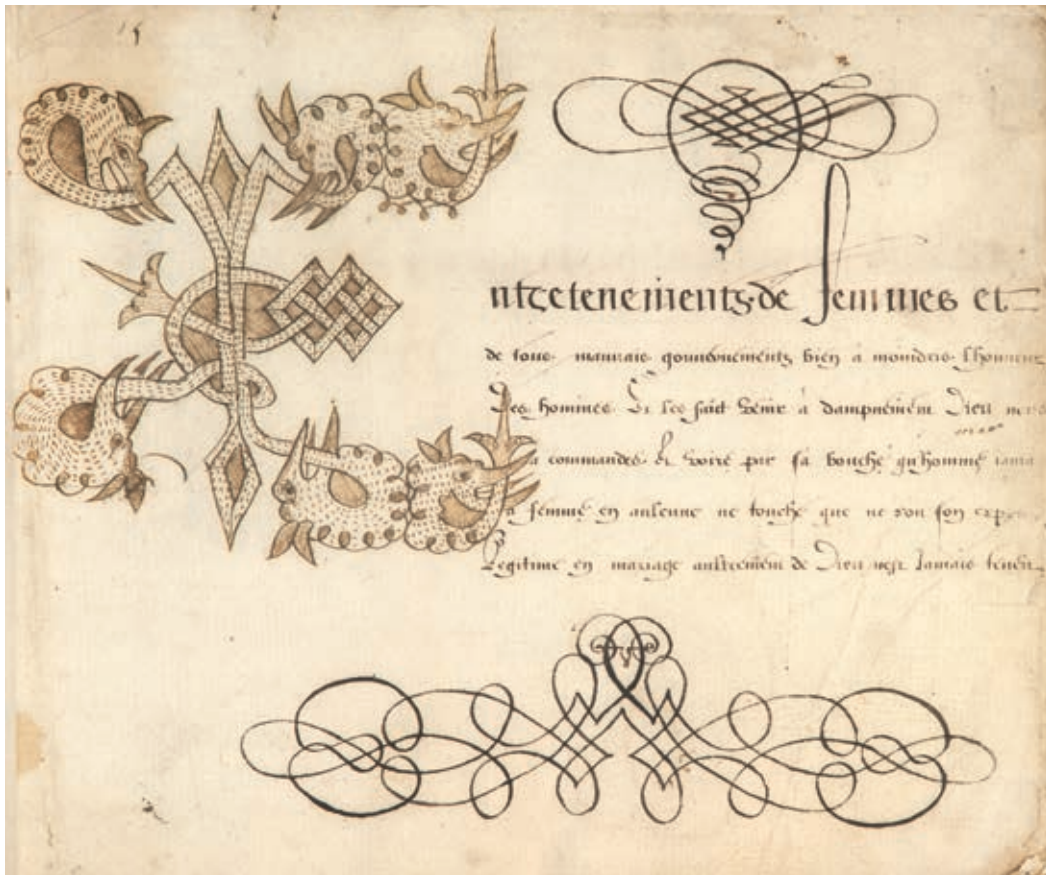 Entretenements de femmes et
de tous mauvais gouvernements bien a moindrir lhonneur
Des hommes Et les faict venir à dampnement Dieu
a commandes Et par sa bouche quhomme iama
a femme en aulcune ne touche que ne son
Legitime en mariage aultrement de Dieu nest Jamais